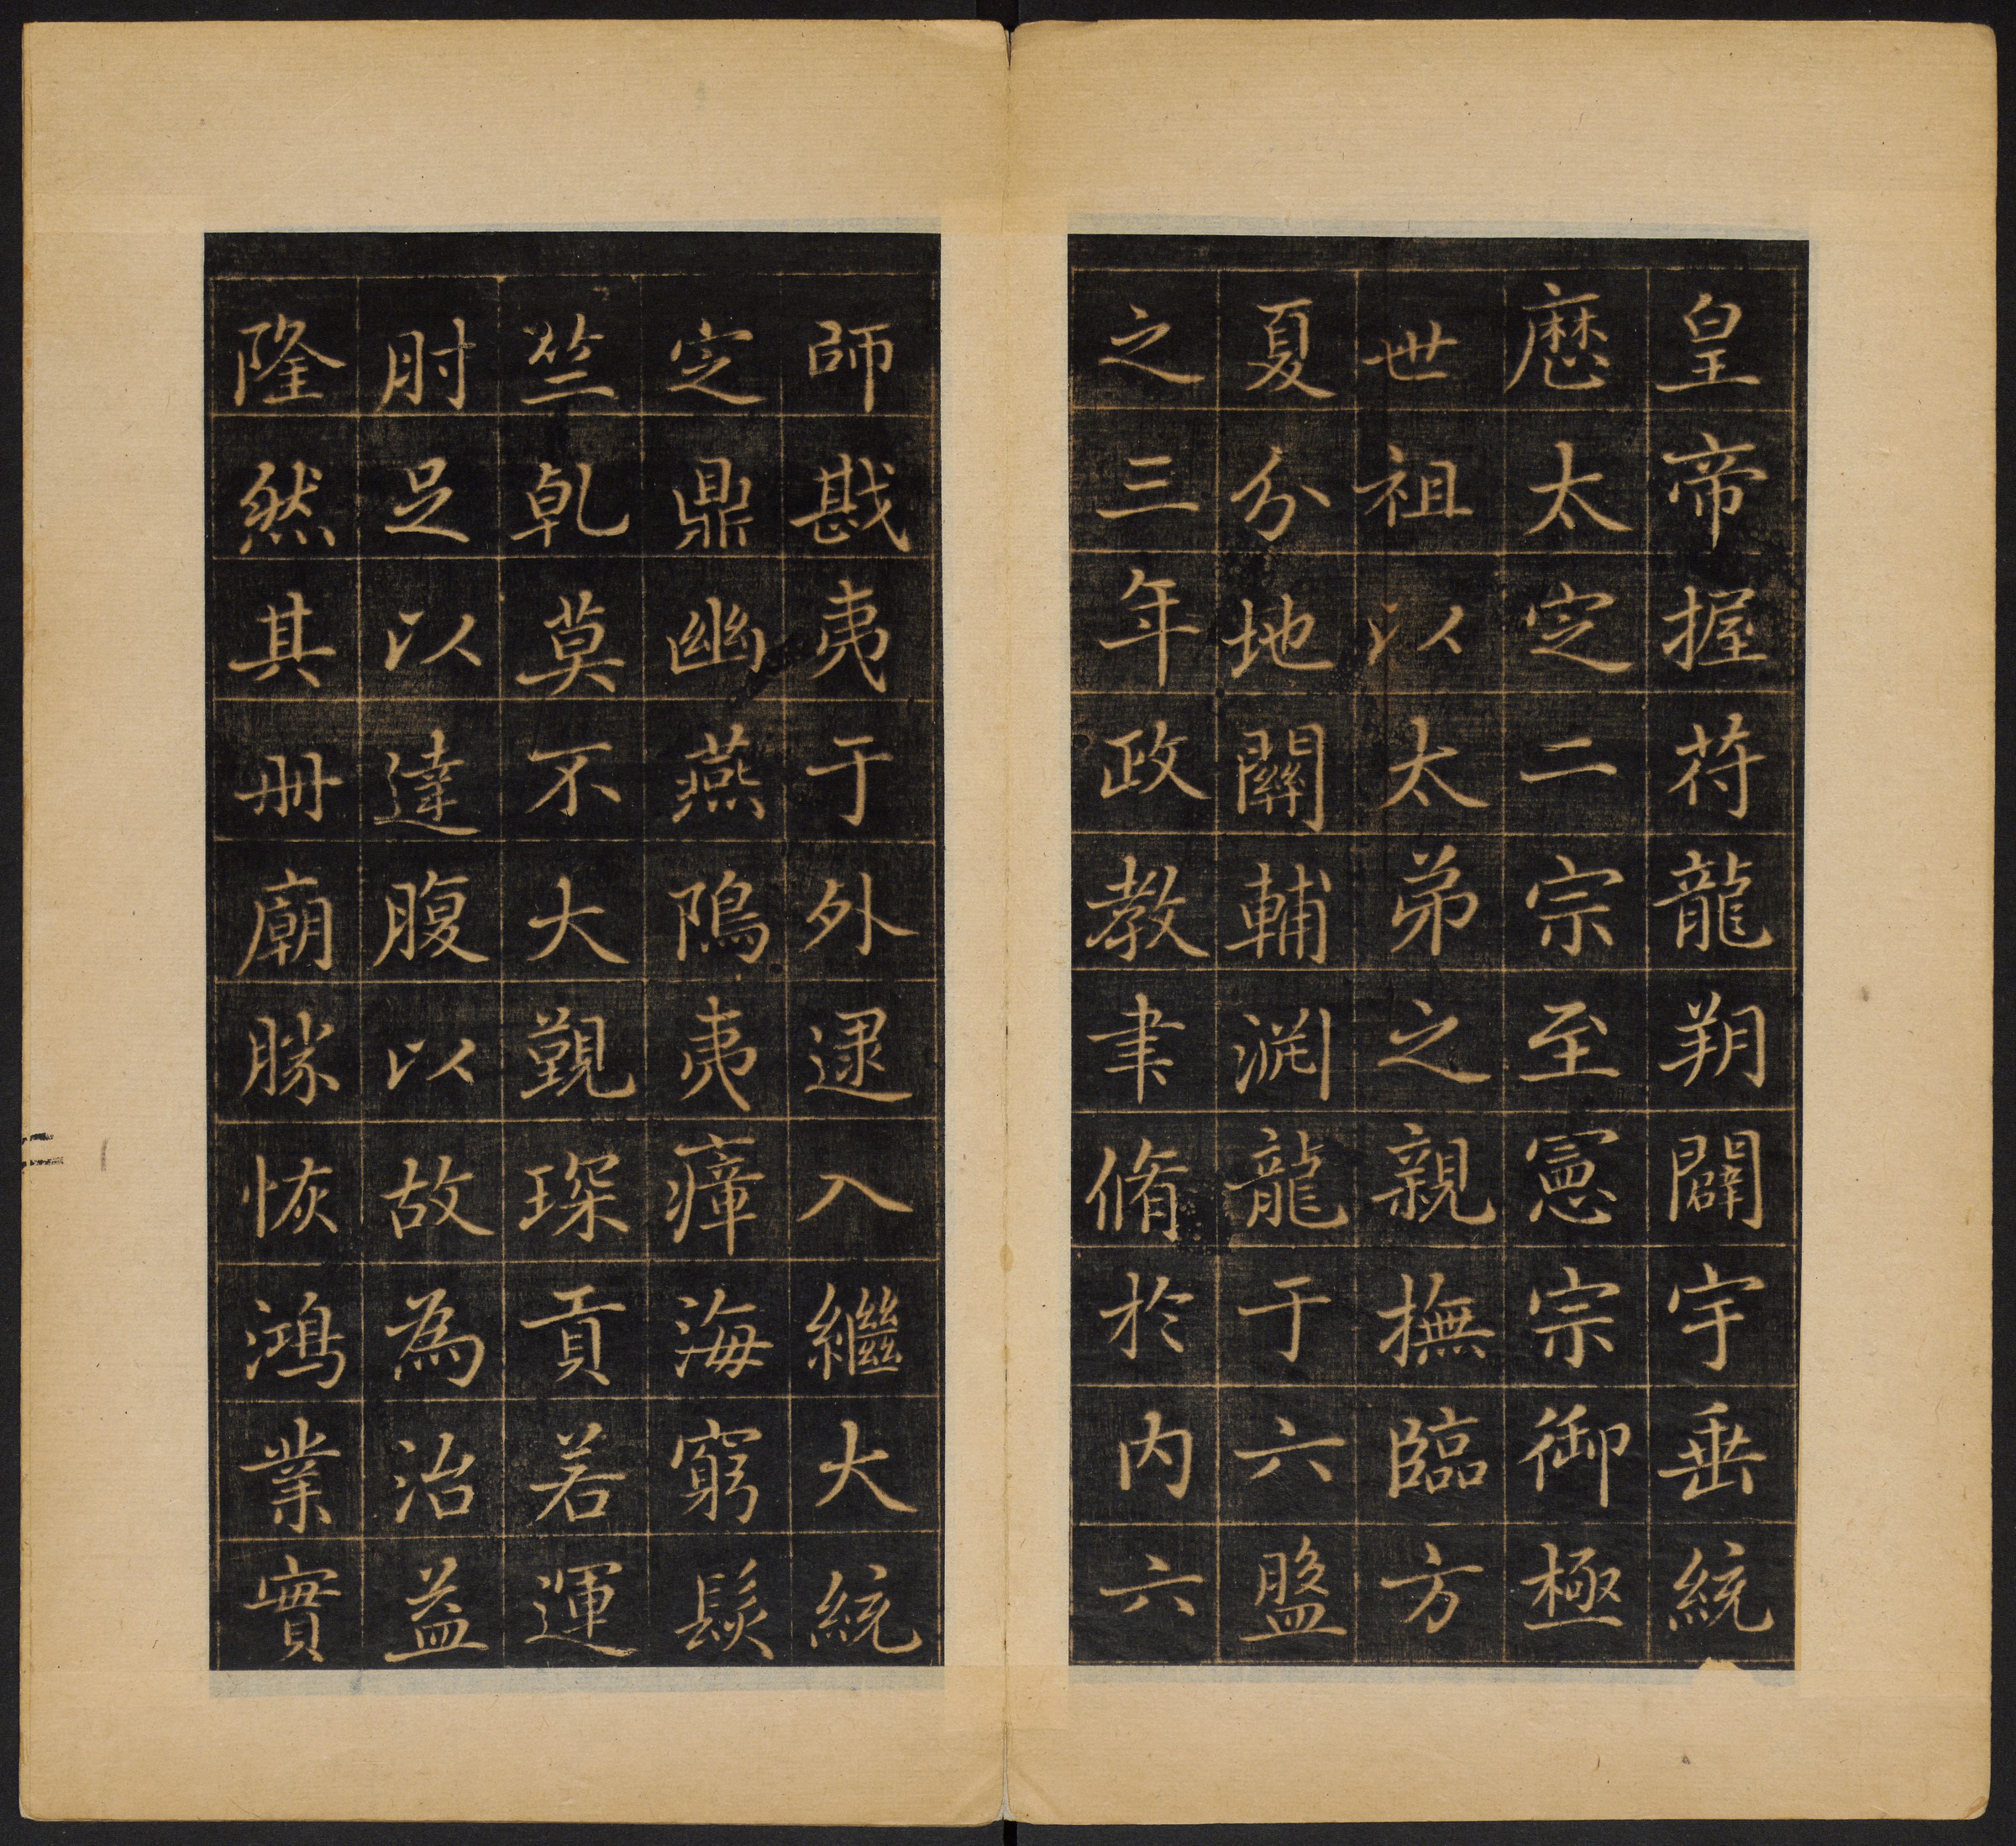 皇帝握苻龍朔闢宇垂統
厯太定二宗至憲宗御極
世祖以太弟之親撫臨方
夏分地關輔淵龍于六盤
之三年政教聿脩於内六
師戡夷于外逮入繼大統
定鼎幽燕隝夷瘴海窮髮
竺乹莫不大觐琛貢若運
肘足以達腹以故為治益
隆然其冊廟勝恢鴻業實